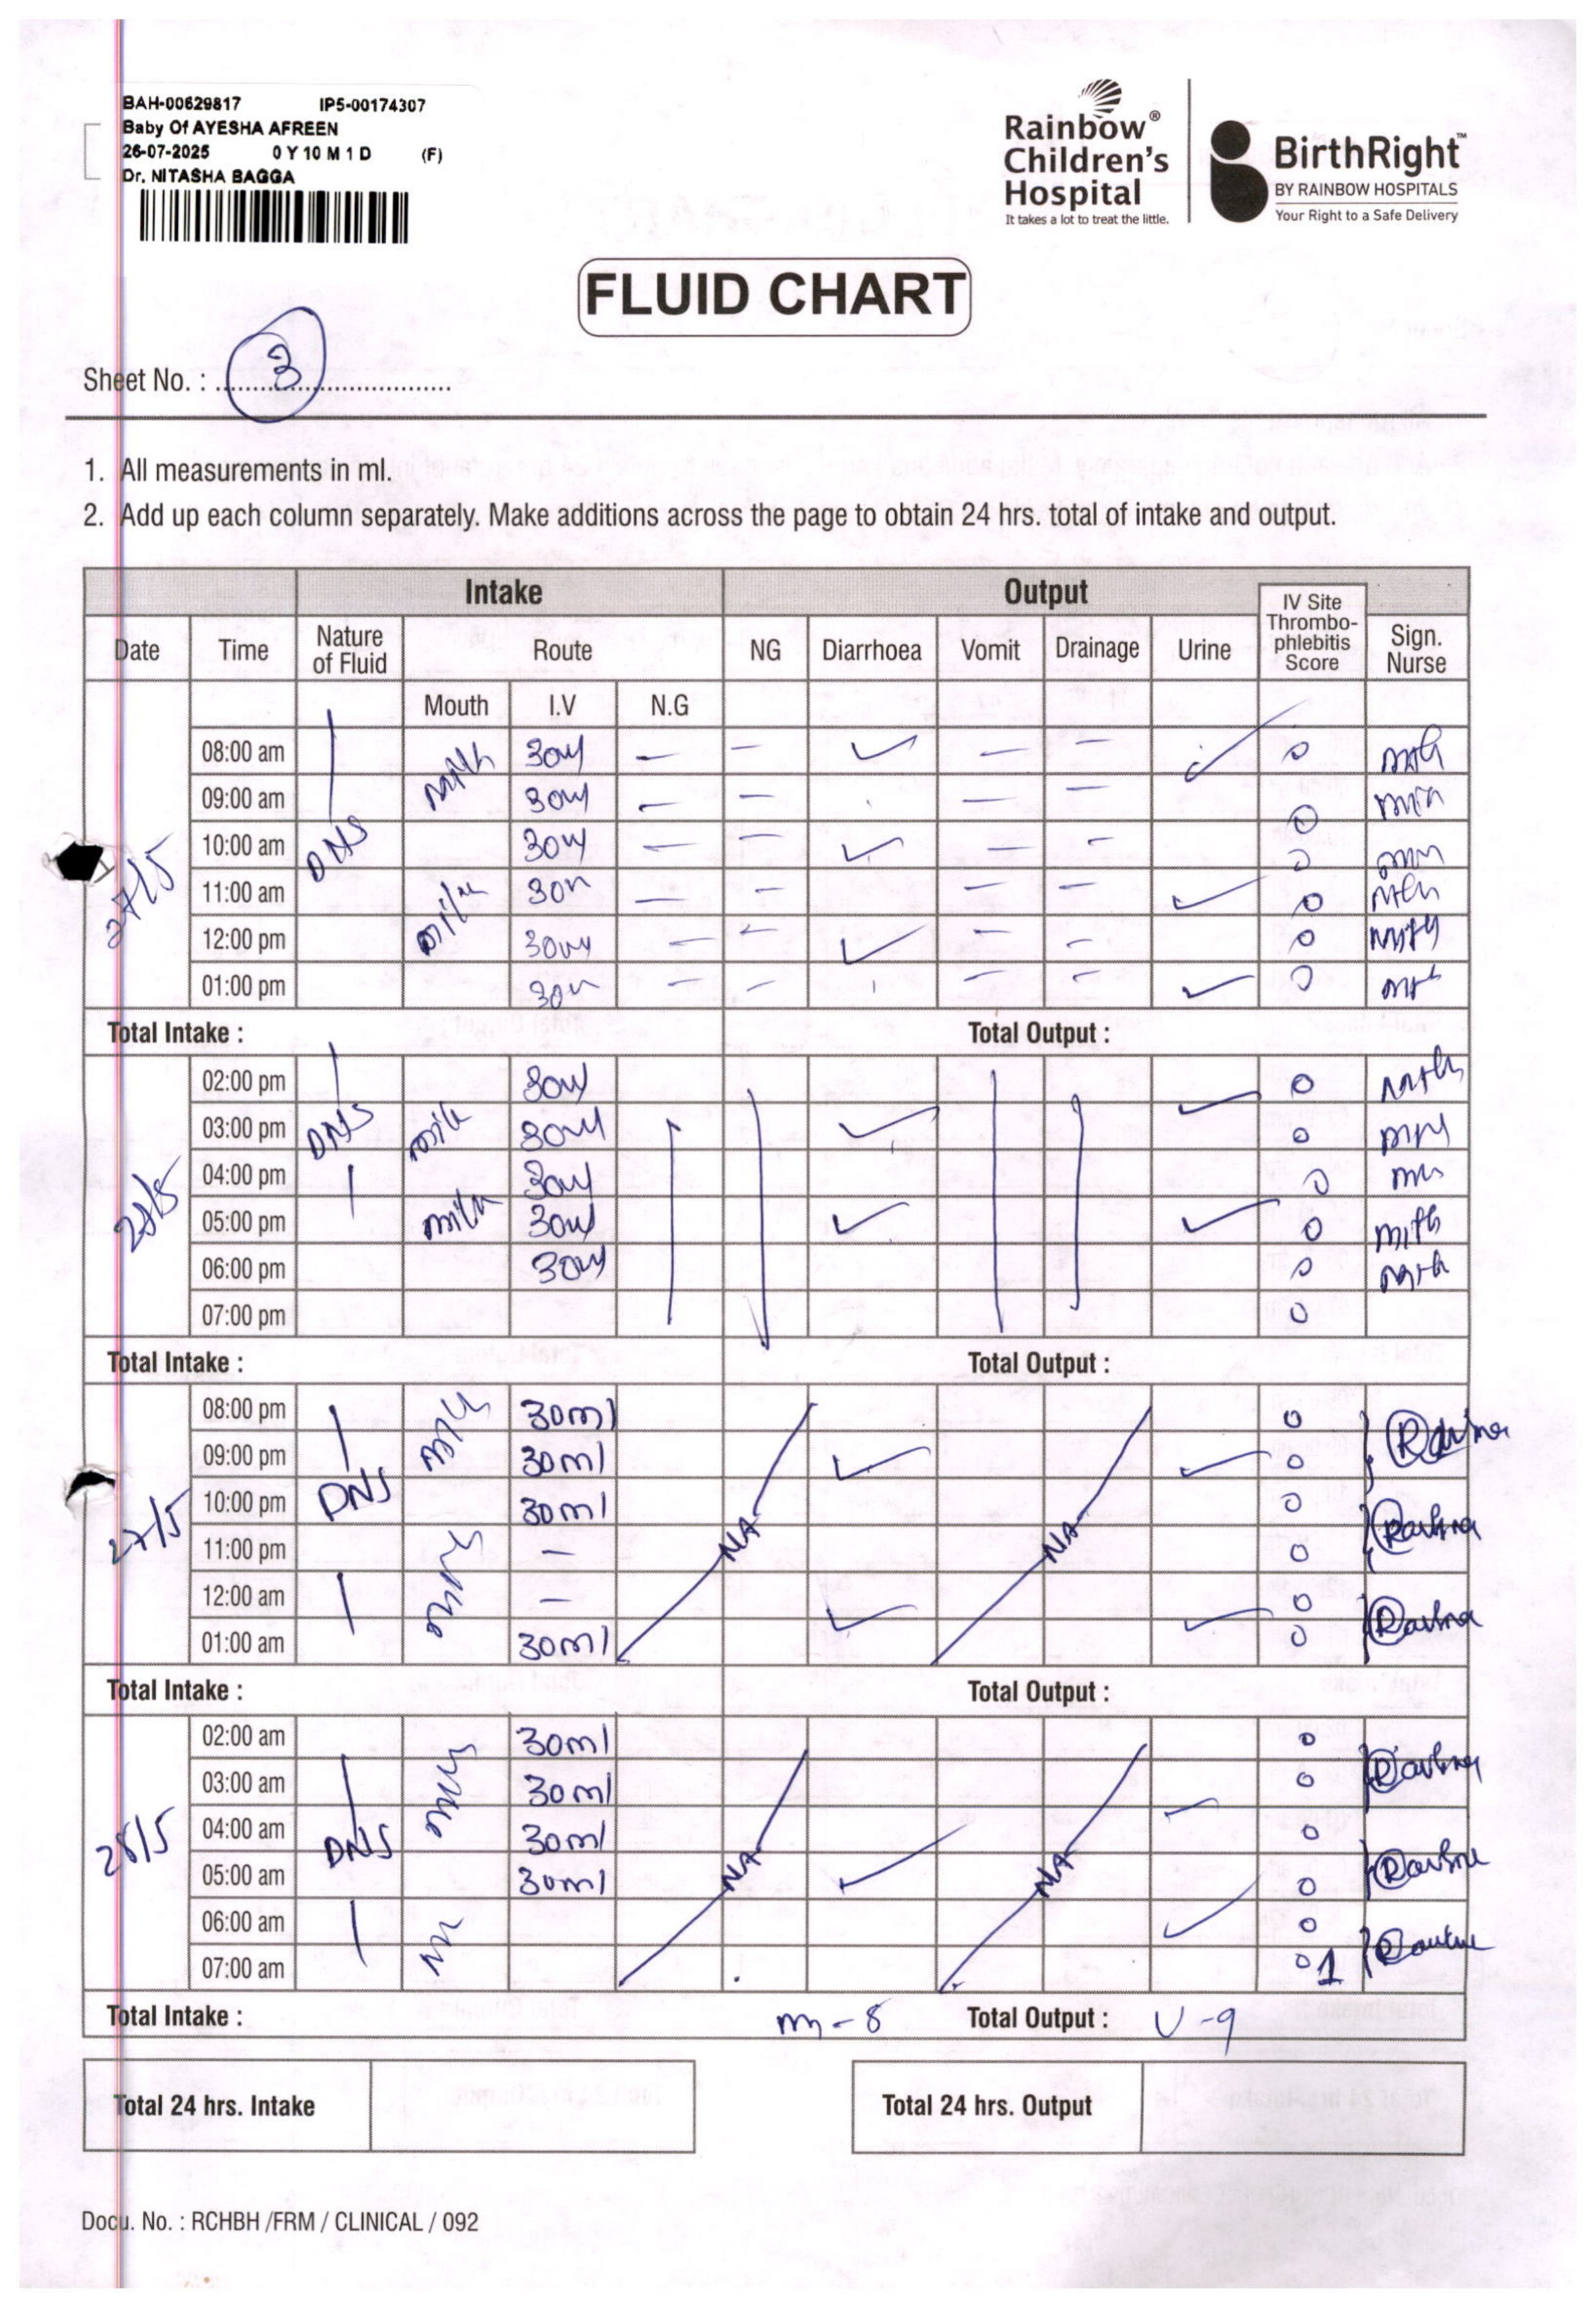 BAH-00629817 IP5-00174307
Baby Of AYESHA AFREEN
26-07-2025 0 Y 10 M 1 D (F)
Dr. NITASHA BAGGA
Rainbow®
Children's
Hospital
It takes a lot to treat the little.
BirthRight™
BY RAINBOW HOSPITALS
Your Right to a Safe Delivery
FLUID CHART
Sheet No. : 3
1. All measurements in ml.
2. Add up each column separately. Make additions across the page to obtain 24 hrs. total of intake and output.
Intake Output
Date Time Nature of Fluid Route NG Diarrhoea Vomit Drainage Urine IV Site Thrombo-phlebitis Score Sign. Nurse
Mouth I.V N.G
27/5 DNS
08:00 am milk 30ml — — ✓ — — ✓ 0
09:00 am 30ml — — — — 0
10:00 am 30ml — — ✓ — — 0
11:00 am milk 30ml — — — — ✓ 0
12:00 pm 30ml — — ✓ — — 0
01:00 pm 30ml — — — — ✓ 0
Total Intake : Total Output :
DNS
02:00 pm 30ml ✓ 0
03:00 pm milk 30ml ✓ 0
04:00 pm 30ml 0
05:00 pm milk 30ml ✓ ✓ 0
06:00 pm 30ml 0
07:00 pm 0
Total Intake : Total Output :
27/5 DNS NA NA
08:00 pm milk 30ml 0
09:00 pm 30ml ✓ ✓ 0
10:00 pm 30ml 0
11:00 pm — 0
12:00 am — 0
01:00 am 30ml ✓ ✓ 0
Total Intake : Total Output :
28/5 DNS NA NA
02:00 am 30ml 0
03:00 am 30ml 0
04:00 am 30ml ✓ 0
05:00 am 30ml ✓ 0
06:00 am ✓ 0
07:00 am 0 1
Total Intake : m-8 Total Output : U-9
Total 24 hrs. Intake Total 24 hrs. Output
Docu. No. : RCHBH /FRM / CLINICAL / 092